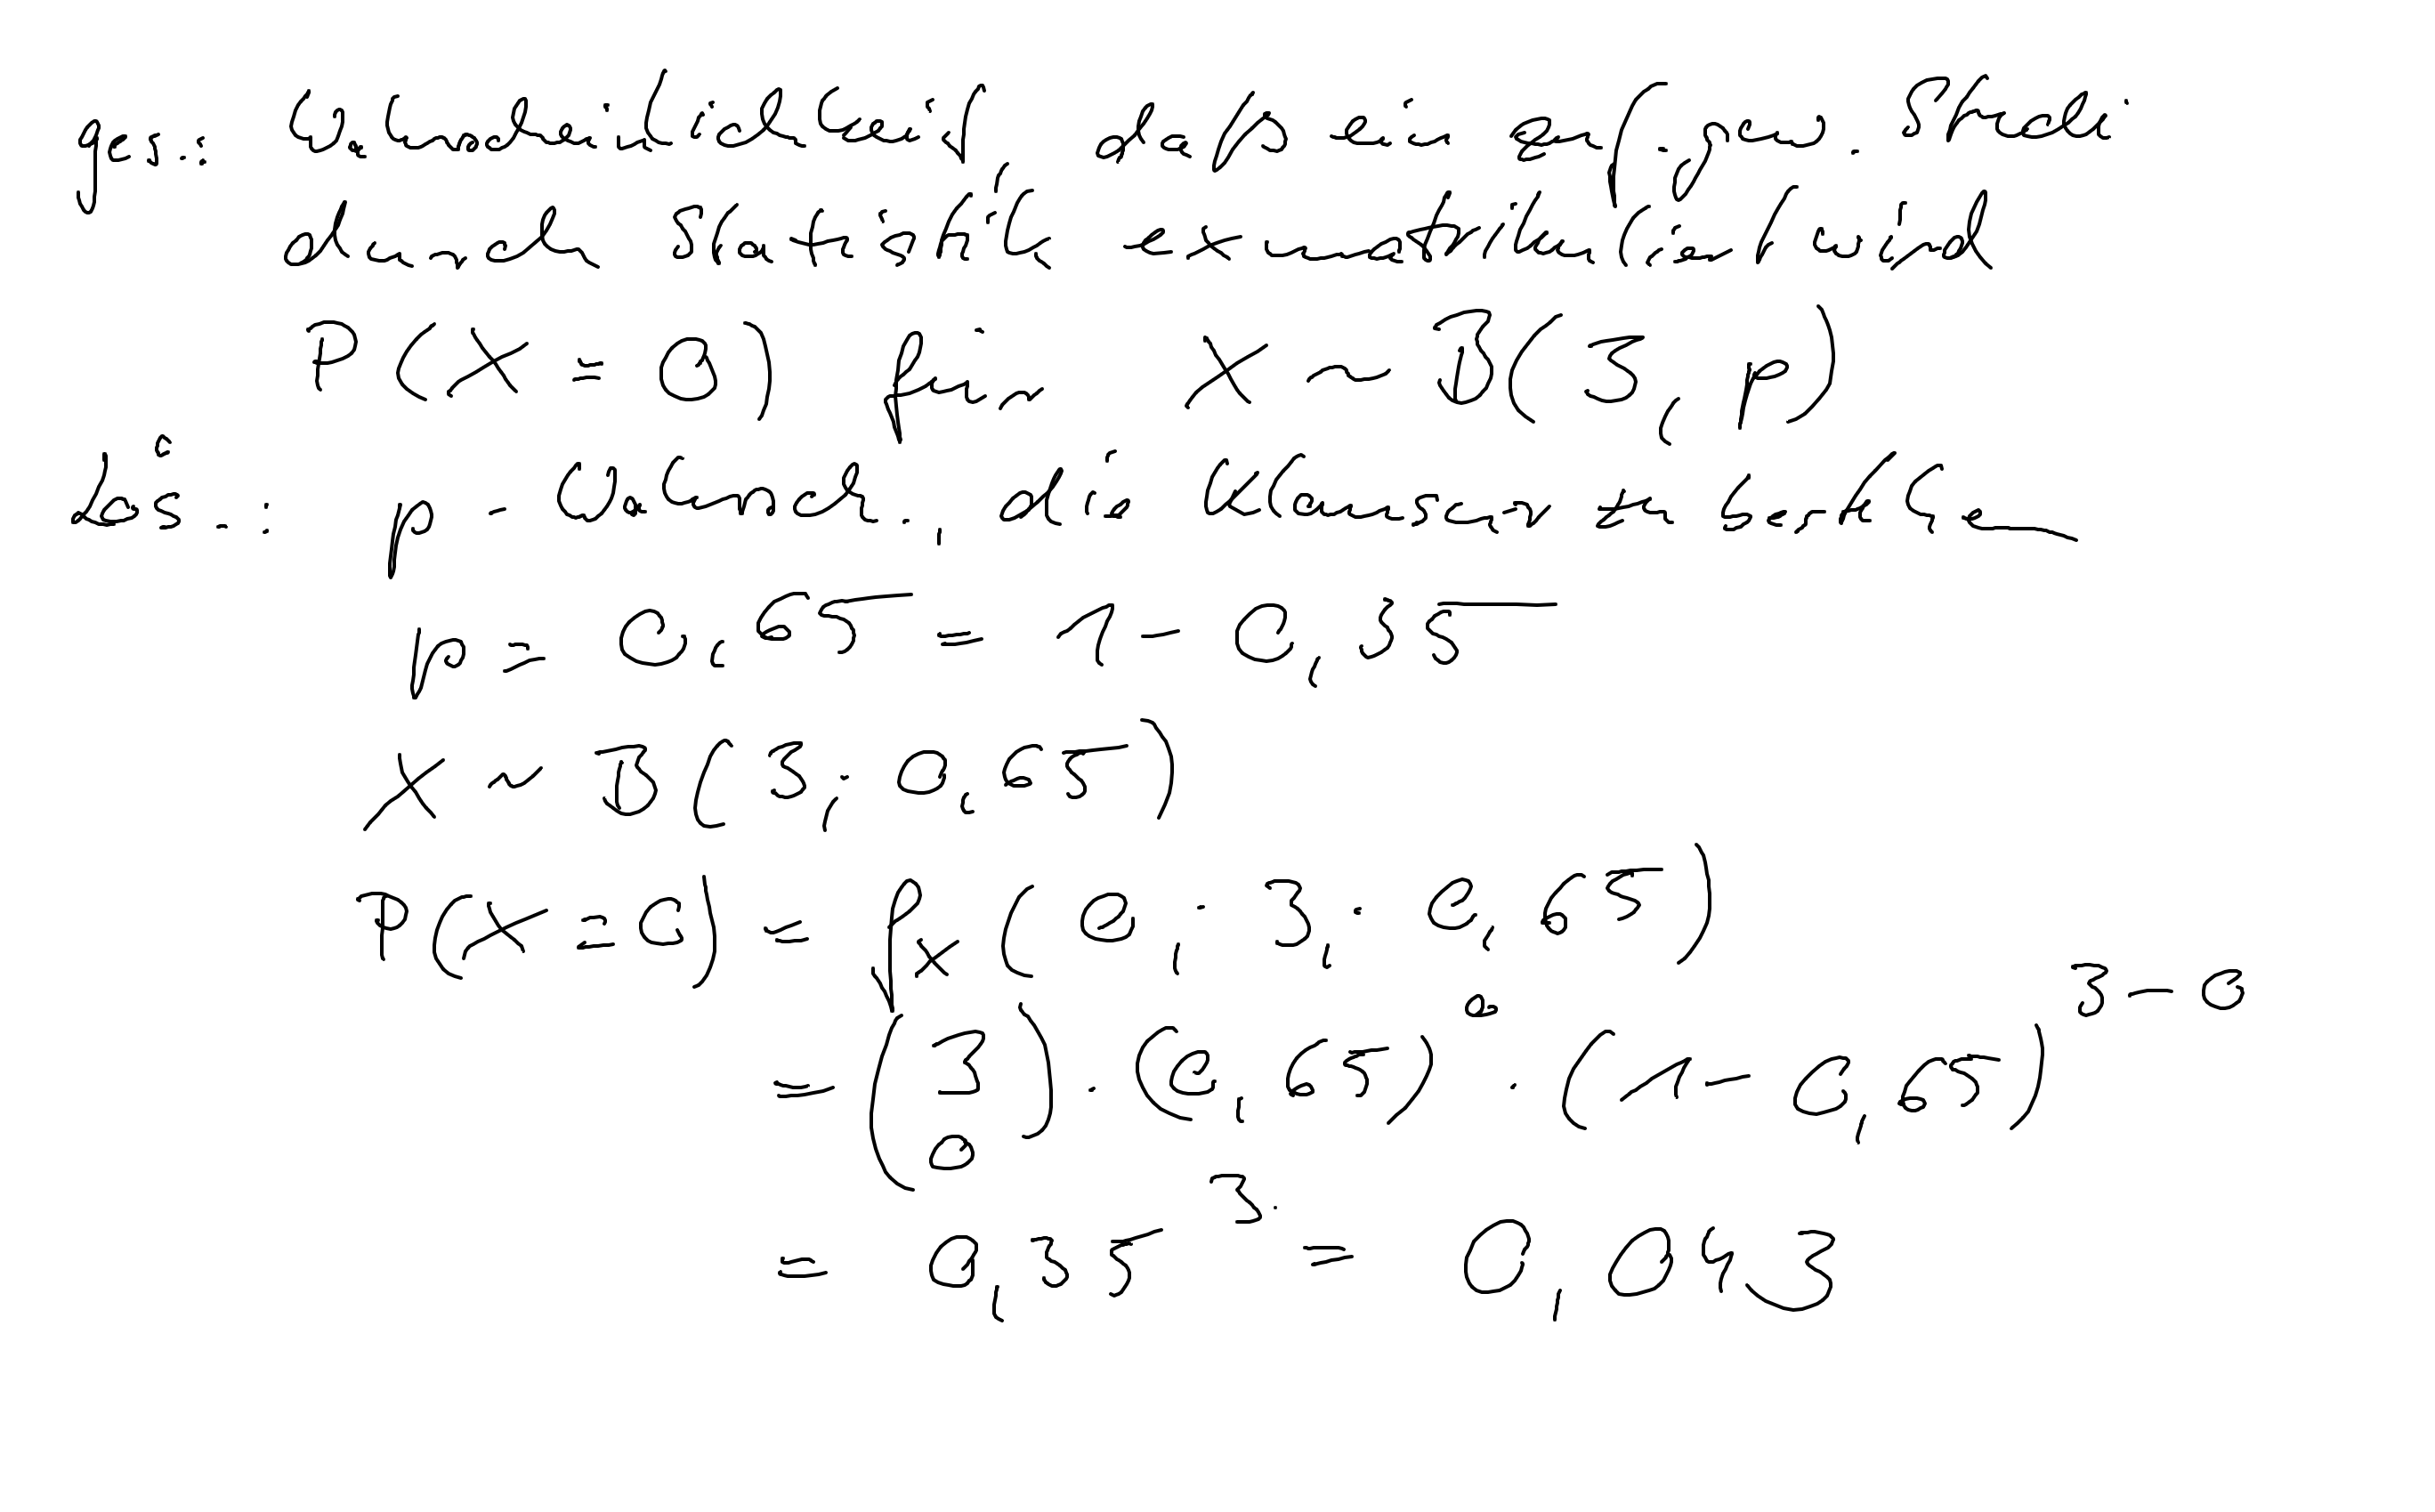 ges.: Wahrscheinlichkeit, daß ein aufgen. Studi
durch Statistik exmatrikuliert wird
P(X = 0) für X ~ B(3, p)
Lös.: p - Wahrsch., die Klausur zu bestehen
p = 0,65 = 1 - 0,35
X ~ B(3; 0,65)
P(X = 0) = f_X(0; 3; 0,65)
= (3 0) · (0,65)^0 · (1 - 0,65)^{3-0}
= 0,35^3 = 0,043